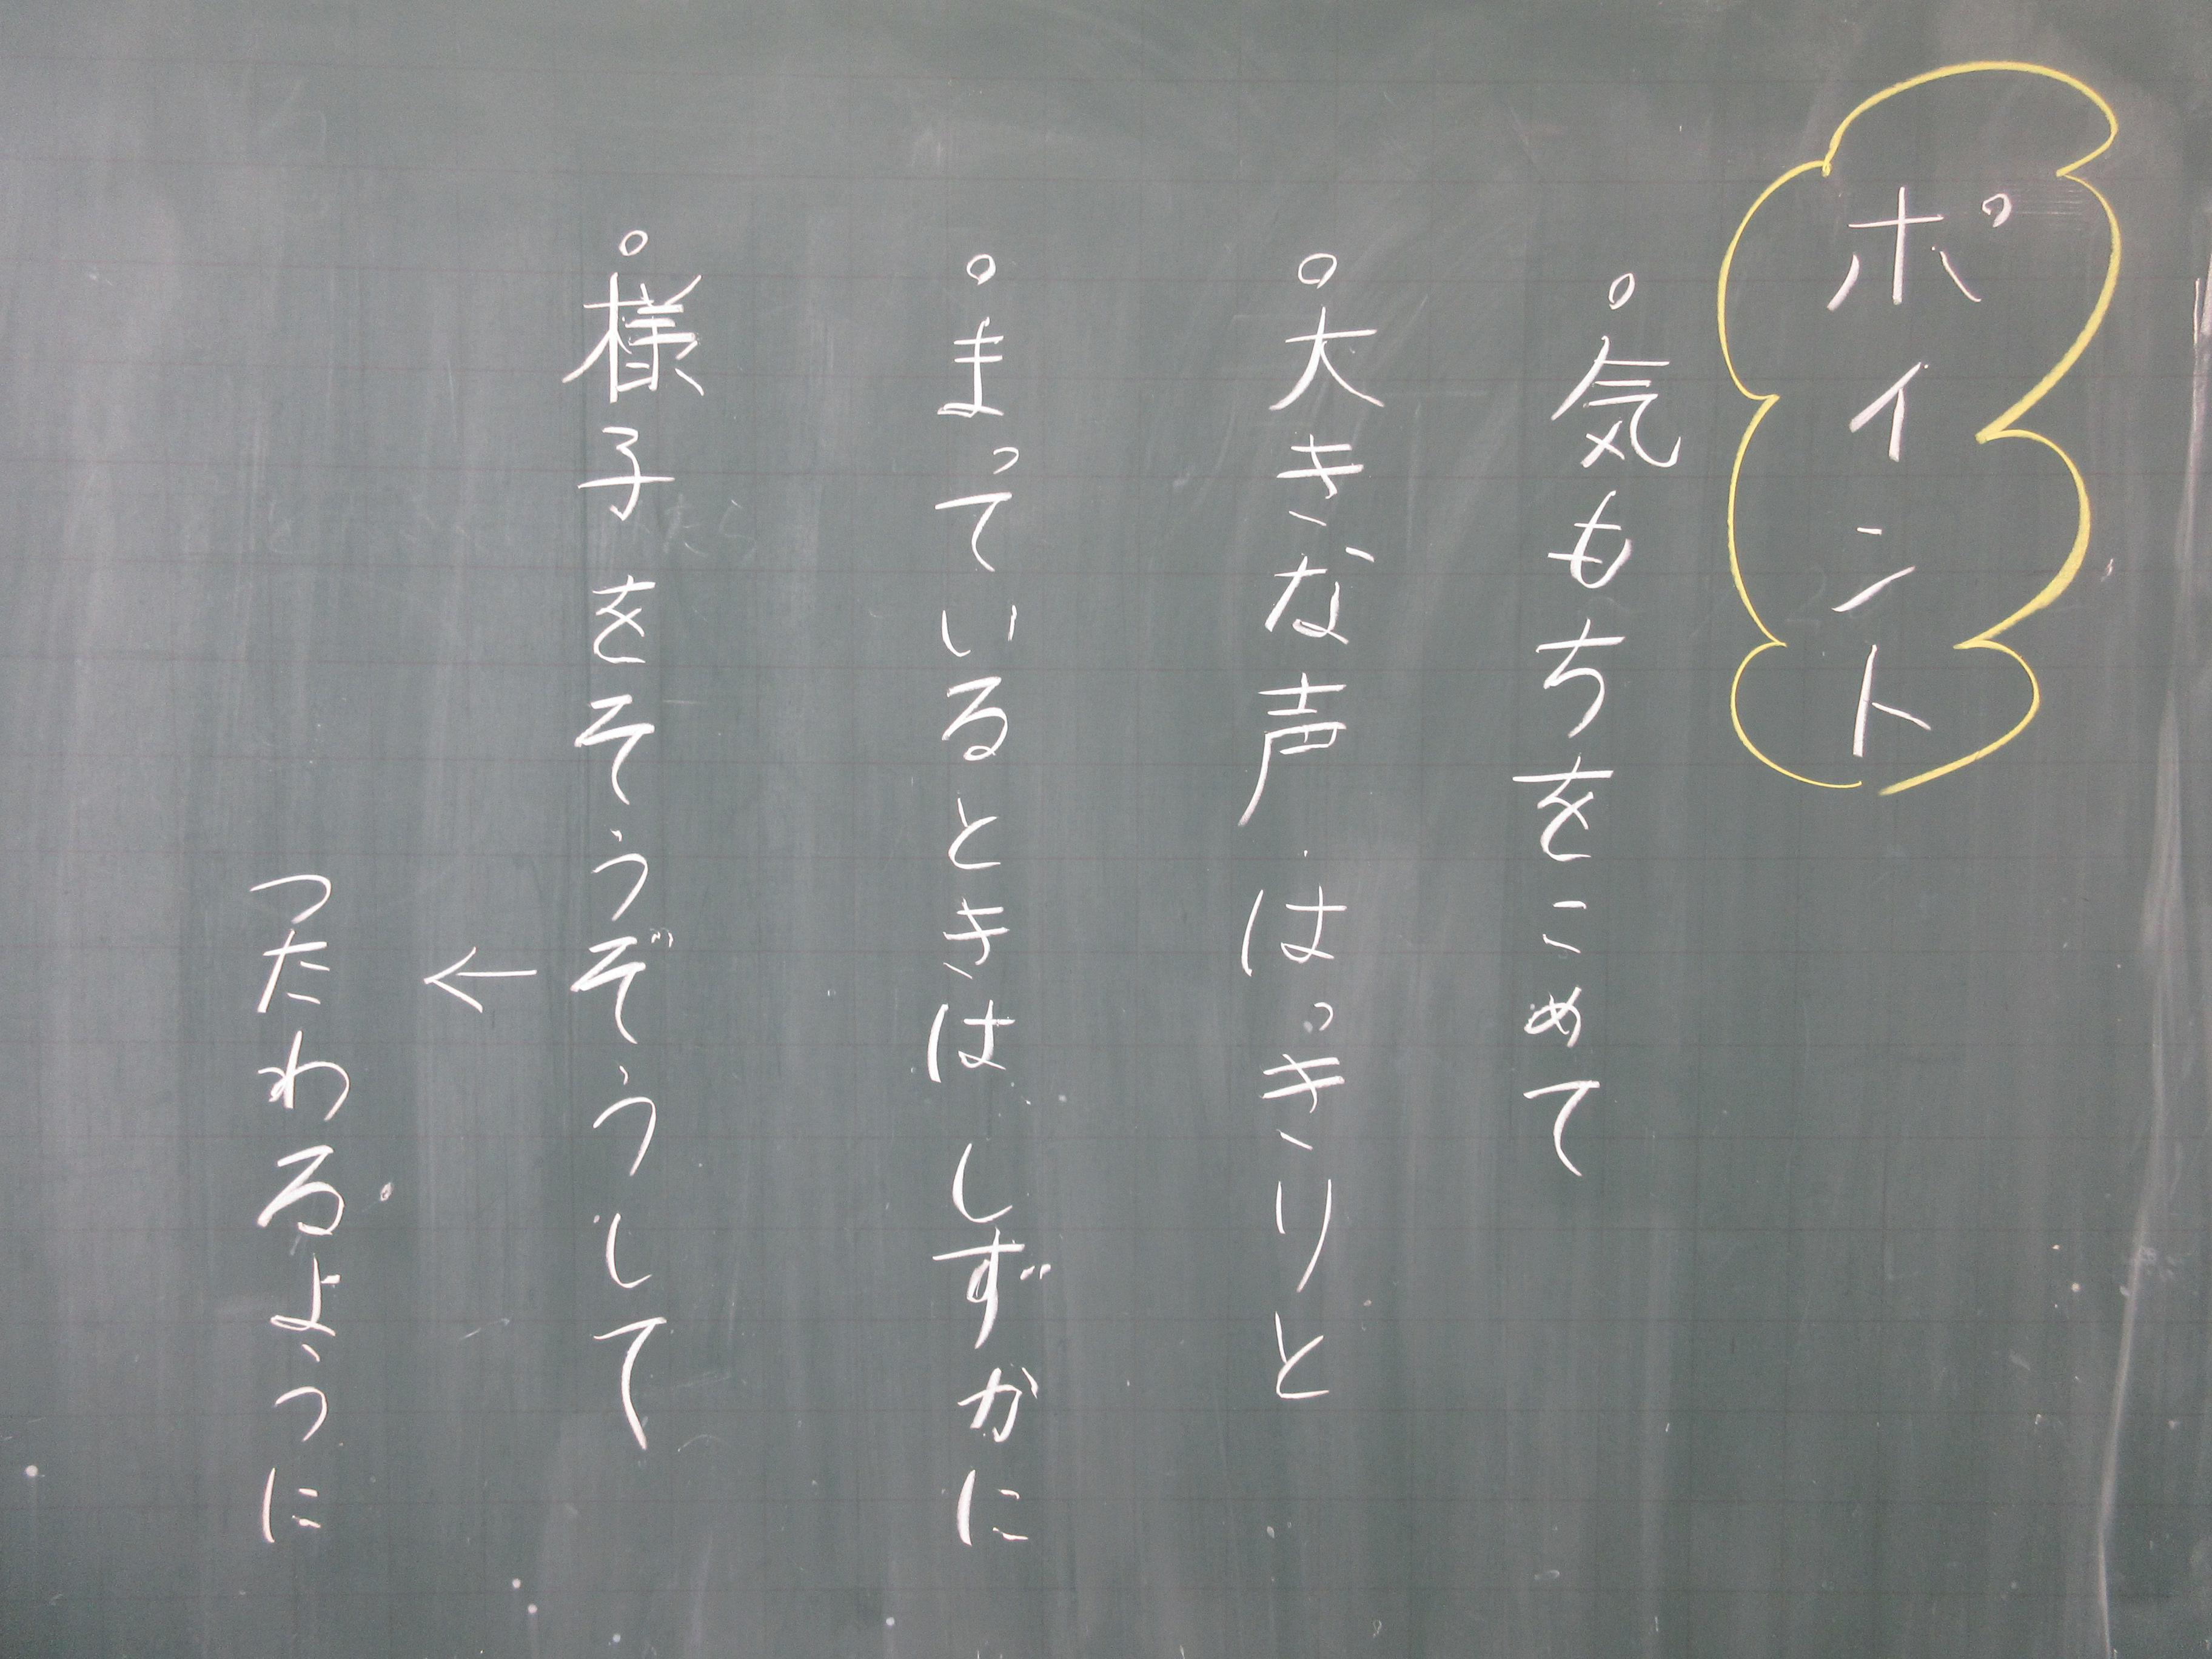 ポイント
。気もちをこめて
。大きな声 はっきりと
。まっているときは しずかに
。様子をそうぞうして
←
つたわるように